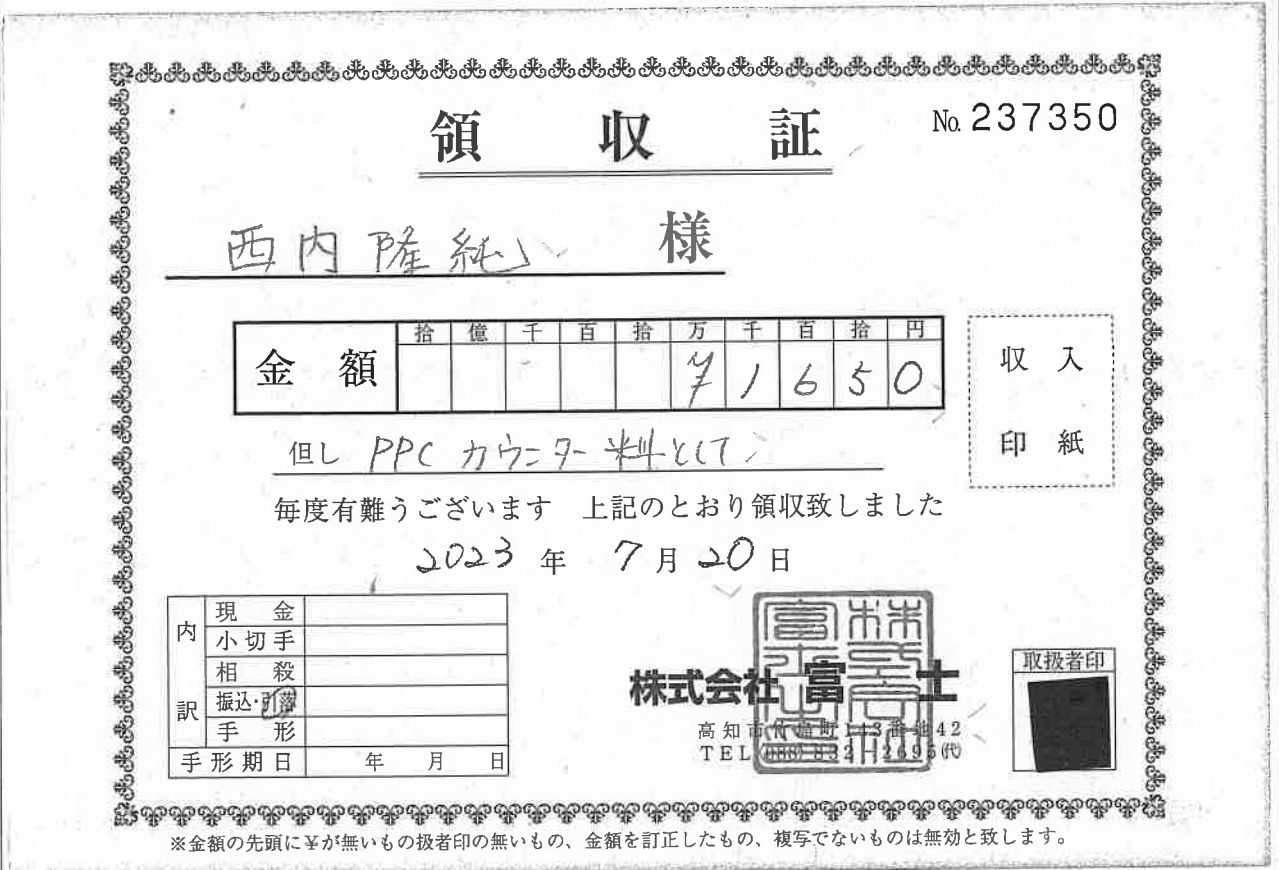 領収証
No. 237350
西内隆純 様
金額 拾 億 千 百 拾 万 千 百 拾 円
¥1650
収入
印紙
但し PPCカウンター料として
毎度有難うございます 上記のとおり領収致しました
2023年 7月20日
内訳
現金
小切手
相殺
振込・引落
手形
手形期日 年 月 日
株式会社 富士
高知市
TEL (088) 832-2695(代)
取扱者印
※金額の先頭に¥が無いもの扱者印の無いもの、金額を訂正したもの、複写でないものは無効と致します。